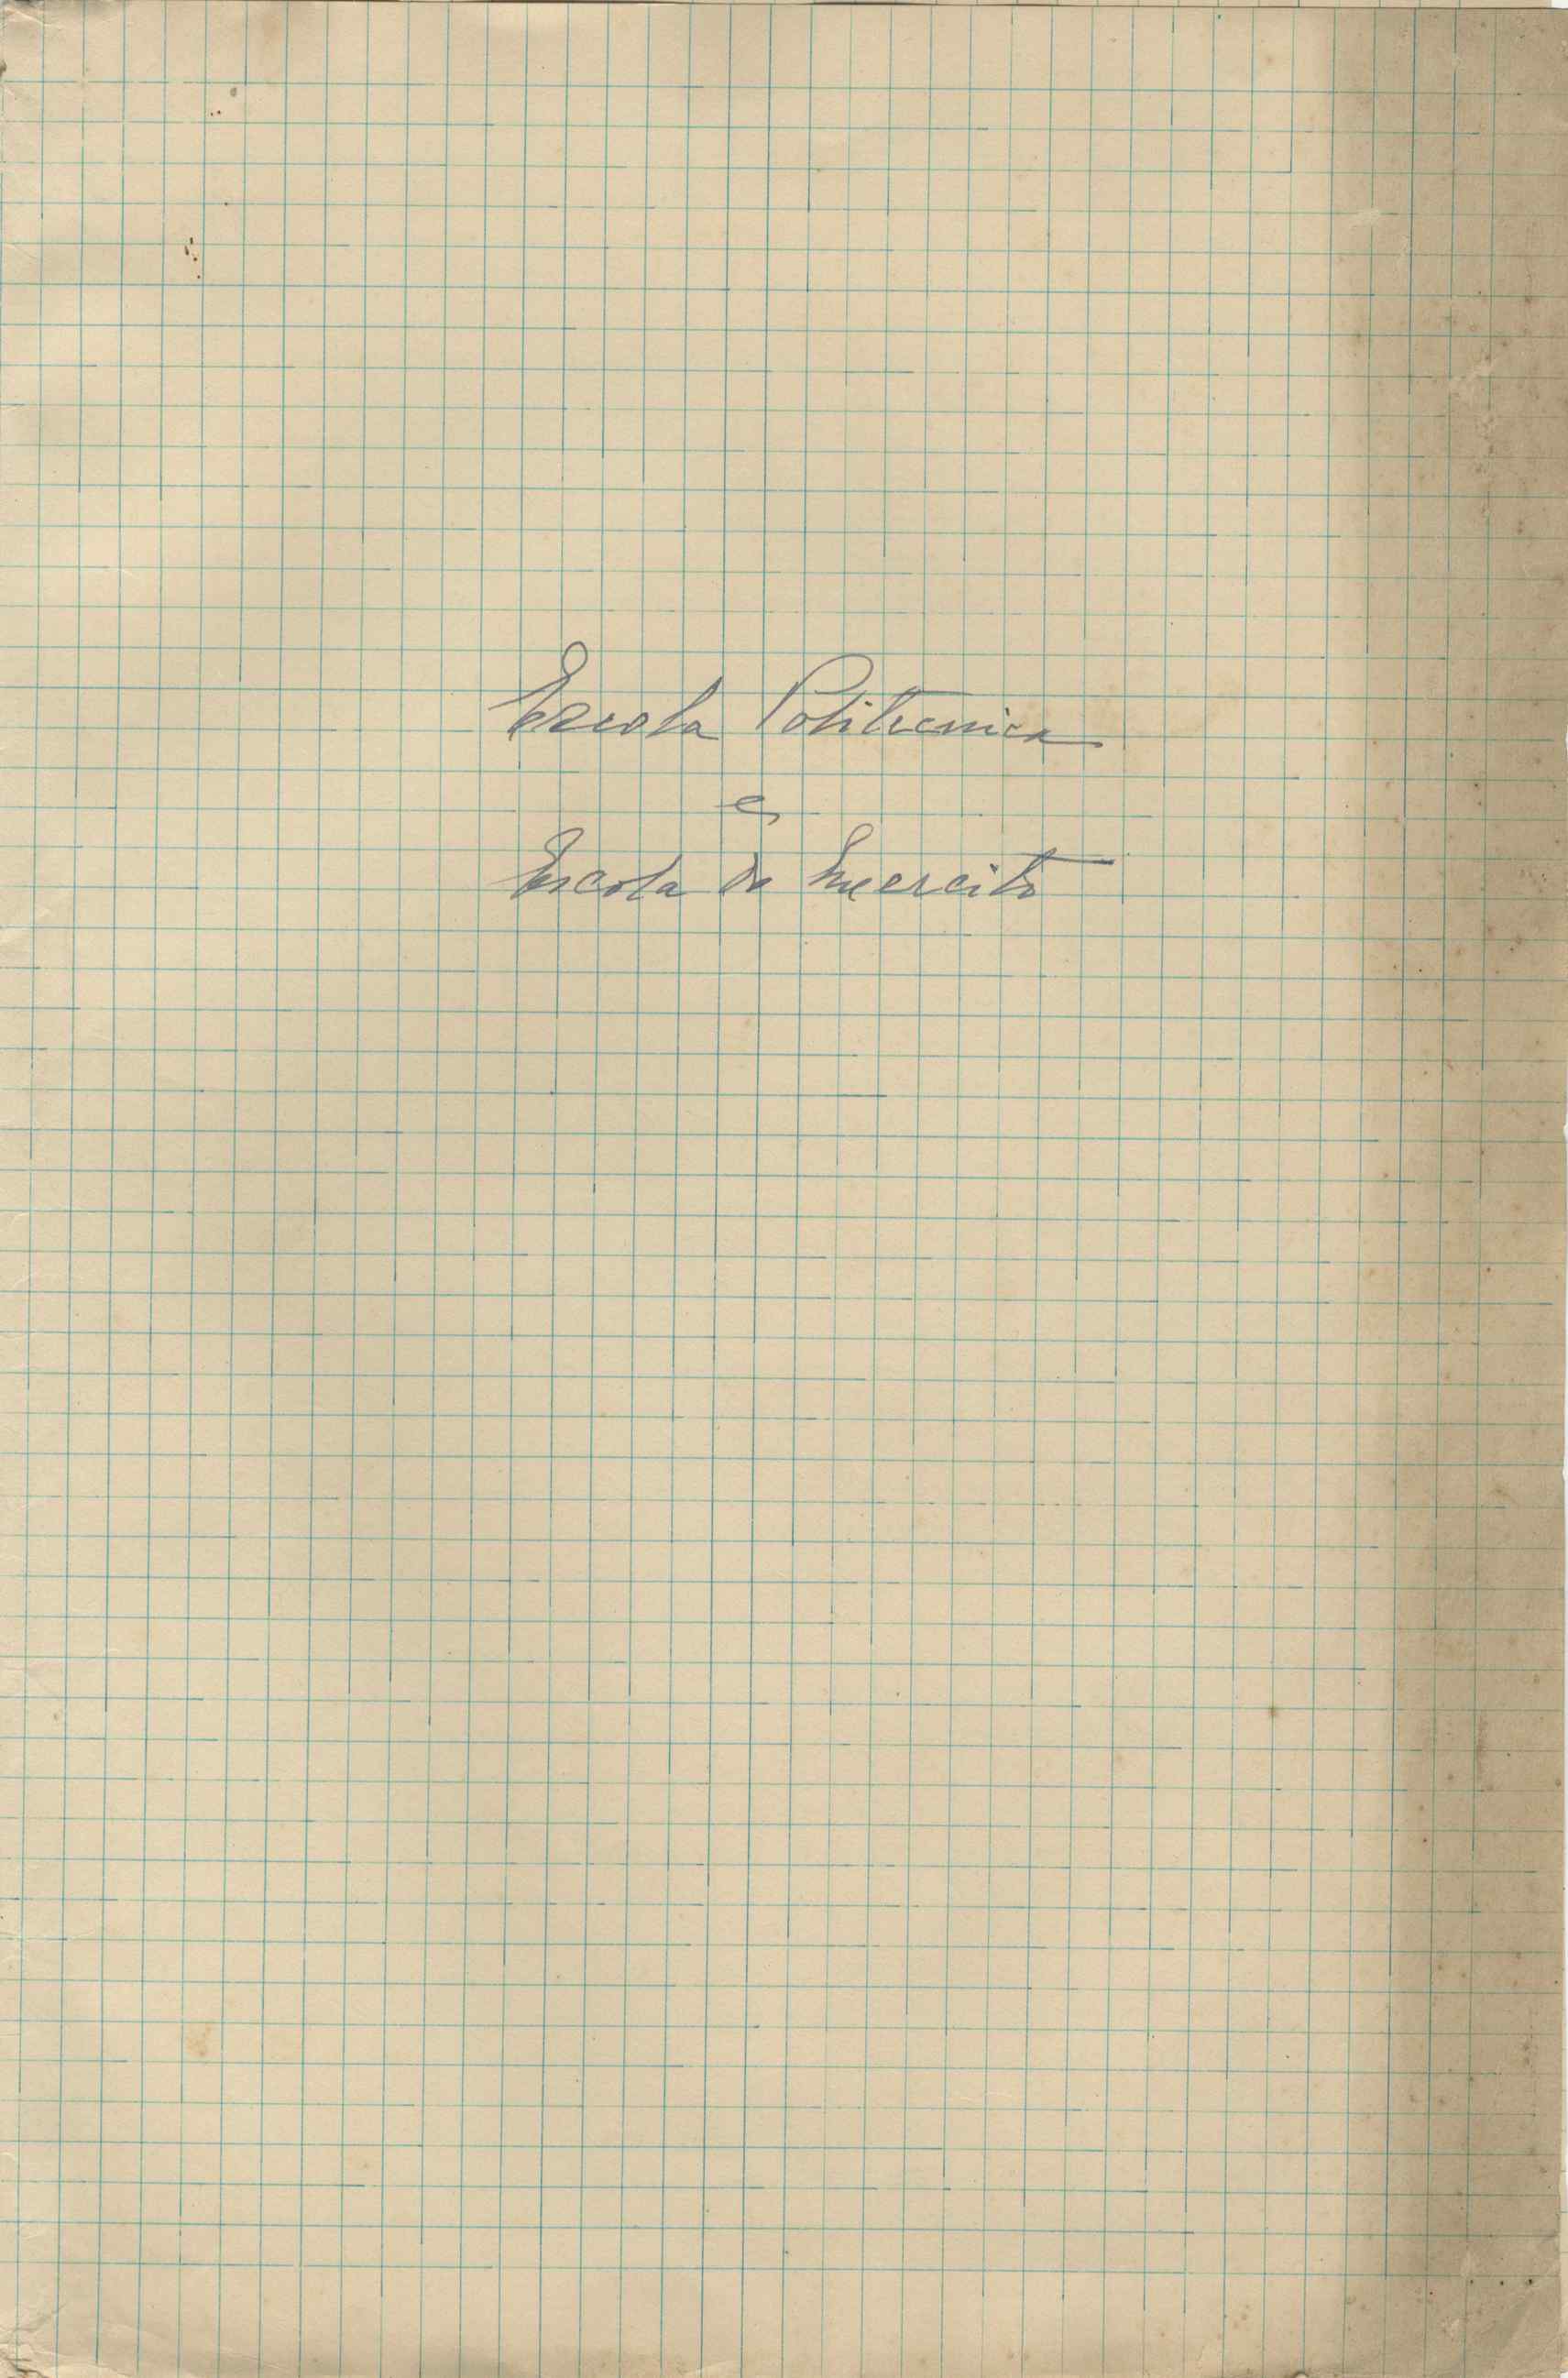 Escola Politecnica
e
Escola do Exercito